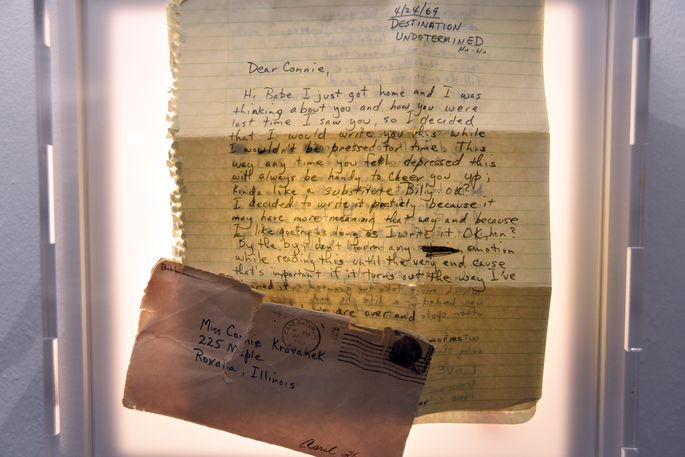 4/24/69
DESTINATION
UNDETERMINED
Dear Connie,
Hi Babe. I just got home and I was
thinking about you and how you were
last time I saw you, so I decided
that I would write you this while
I wouldn't be pressed for time. This
way any time you feel depressed this
will always be handy to cheer you up;
kinda like a substitute Billy OK?
I decided to write it poeticly because it
may have more meaning that way and because
I like poetry as long as I write it. OK, hon?
By the by; don't form any emotion
while reading this until the very end cause
that's important if it turns out the way I've
it
are over and
memories
LOVE
Miss Connie Kravanek
225 Maple
Roxana, Illinois
April